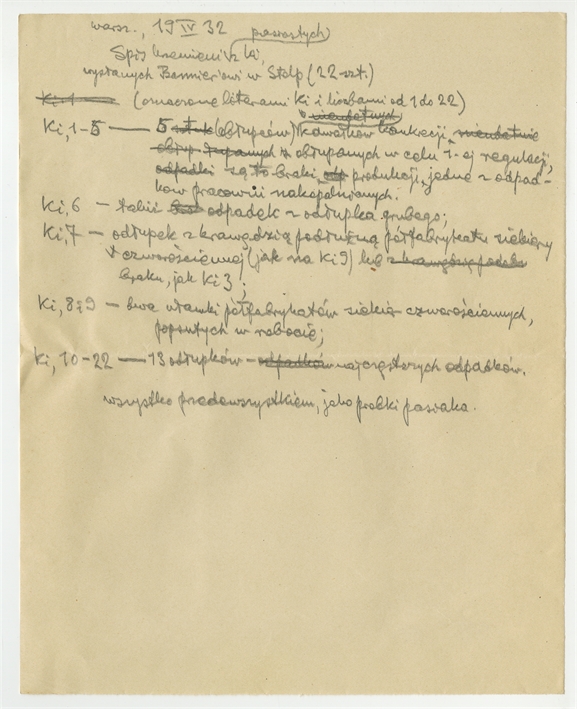 Warsz., 19 IV 32 pasiastych
Spis krzemieni z Ki,
wysłanych Barmierowi w Stolp (22 szt.)
Ki 1 (oznaczone literami Ki i liczbami od 1 do 22)
nieudatnych
Ki, 1-5 — 5 sztuk (obłupców) kawałków konkrecji, nieudatnie
obłup. łupanych z obłupanych w celu 1-ej regulacji,
odpadki są to braki, produkcji, jedne z odpad-
ków pracowni nakopalnianych.
Ki, 6 — takiż odpadek z odłupka grubego;
Ki, 7 — odłupek z krawędzią podłużną półfabrykatu siekiery
czworościennej (jak na Ki 9) lub z krawędzią
braku, jak Ki 3;
Ki, 8 i 9 — dwa ułamki półfabrykatów siekier czworościennych,
popsutych w robocie;
Ki, 10-22 — 13 odłupków — odpadków najczęstszych odpadków.
wszystko przedewszystkiem, jako próbki pasiaka.